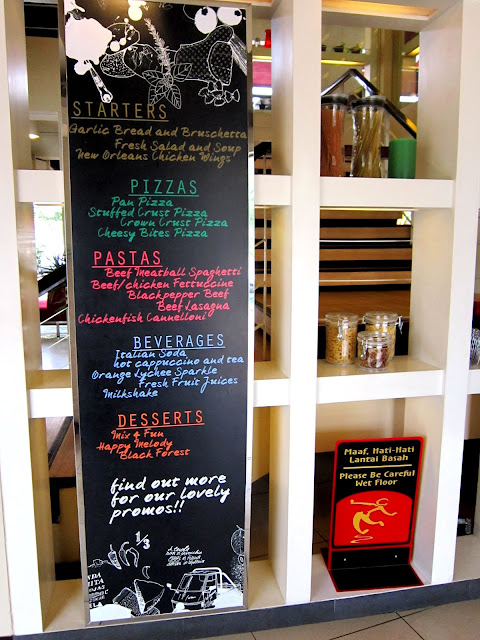 STARTERS
Garlic Bread and Bruschetta
Fresh Salad and Soup
New Orleans Chicken Wings
PIZZAS
Pan Pizza
Stuffed Crust Pizza
Crown Crust Pizza
Cheesy Bites Pizza
PASTAS
Beef Meatball Spaghetti
Beef/chicken Fettuccine
Blackpepper Beef
Beef Lasagna
Chickenfish Cannelloni
BEVERAGES
Italian Soda
hot cappuccino and tea
Orange Lychee Sparkle
Fresh Fruit Juices
Milkshake
DESSERTS
Mix & Fun
Happy Melody
Black Forest
find out more
for our lovely
promos!!
1/3
Maaf, Hati-Hati
Lantai Basah
Please Be Careful
Wet Floor